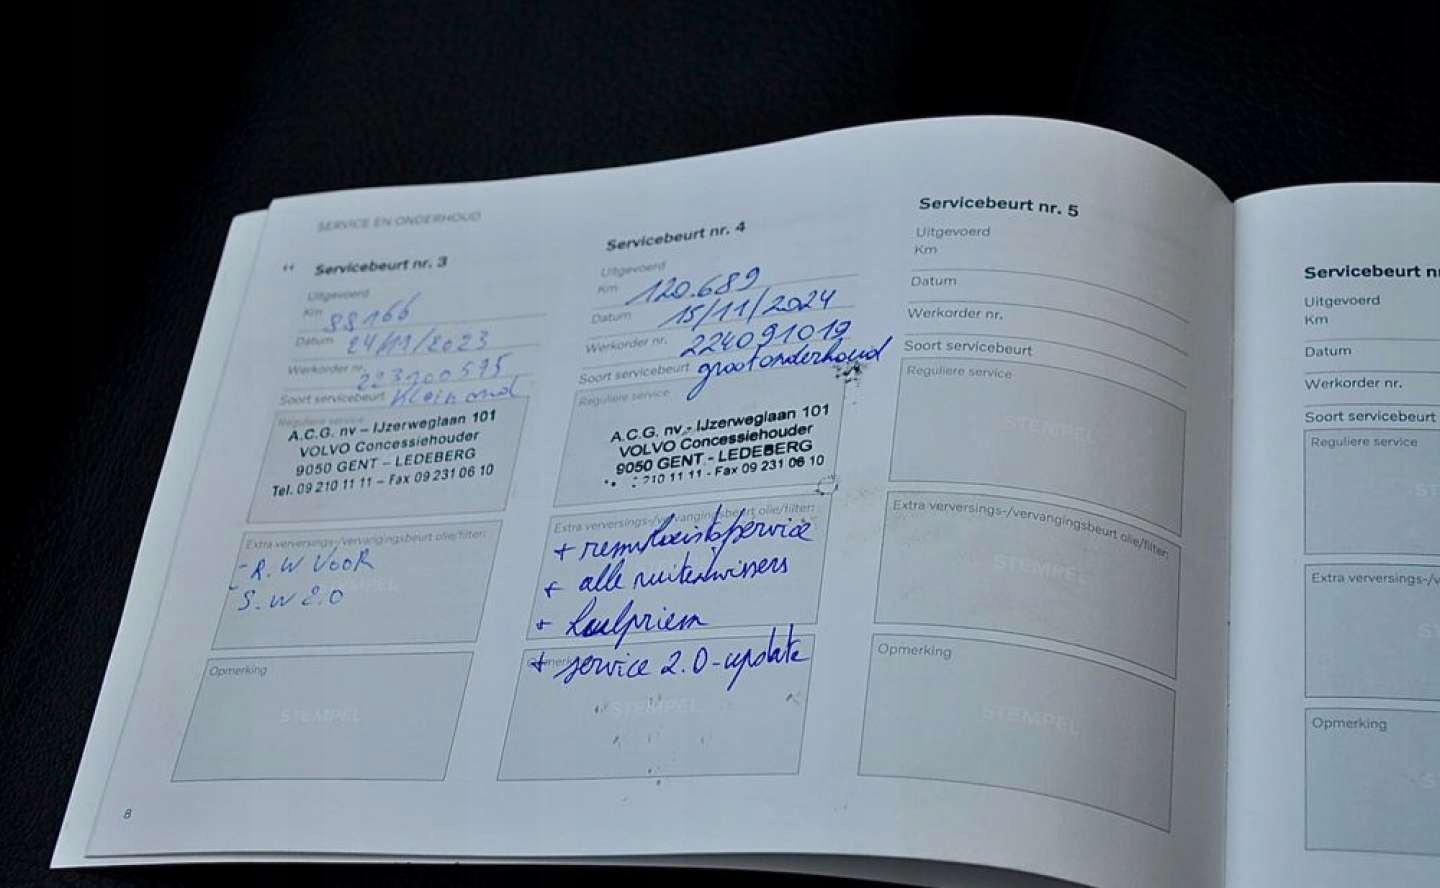 SERVICE EN ONDERHOUD
Servicebeurt nr. 3
Uitgevoerd
Km 88166
Datum 24/11/2023
Werkorder nr. 223100595
Soort servicebeurt Klein ond
Reguliere service
A.C.G. nv – IJzerweglaan 101
VOLVO Concessiehouder
9050 GENT – LEDEBERG
Tel. 09 210 11 11 – Fax 09 231 06 10
Extra verversings-/vervangingsbeurt olie/filter:
- R.W VOOR
- S.W 2.0
STEMPEL
Opmerking
STEMPEL
8
Servicebeurt nr. 4
Uitgevoerd
Km 120.689
Datum 15/11/2024
Werkorder nr. 224091019
Soort servicebeurt groot onderhoud
Reguliere service
A.C.G. nv - IJzerweglaan 101
VOLVO Concessiehouder
9050 GENT - LEDEBERG
210 11 11 - Fax 09 231 06 10
Extra verversings-/vervangingsbeurt olie/filter:
+ remvloeistofservice
+ alle ruitenwissers
+
Opmerking
+ service 2.0-update
STEMPEL
Servicebeurt nr. 5
Uitgevoerd
Km
Datum
Werkorder nr.
Soort servicebeurt
Reguliere service
STEMPEL
Extra verversings-/vervangingsbeurt olie/filter:
STEMPEL
Opmerking
STEMPEL
Servicebeurt n
Uitgevoerd
Km
Datum
Werkorder nr.
Soort servicebeurt
Reguliere service
ST
Extra verversings-/v
ST
Opmerking
S